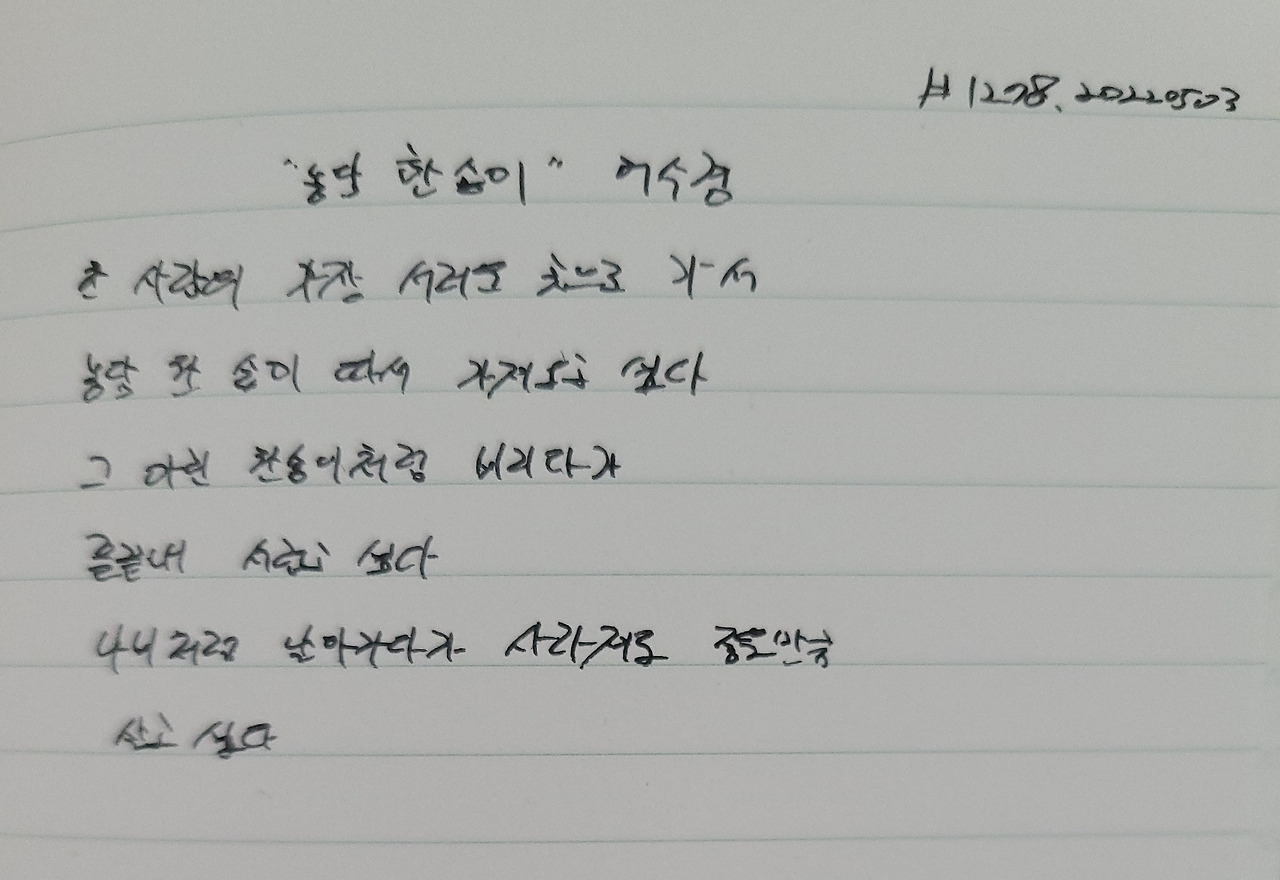 #1278. 20220503
"농담 한 송이" 허수경
한 사람의 가장 서러운 곳으로 가서
농담 한 송이 따서 가져오고 싶다
그 아린 한 송이처럼 비리다가
끝끝내 서럽고 싶다
나비처럼 날아가다가 사라져도 좋을 만큼
살고 싶다